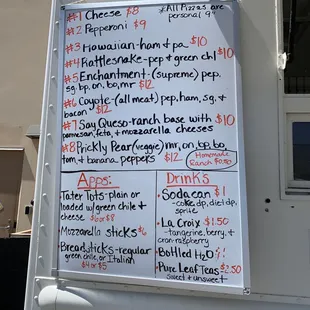 #1 Cheese $8
*All Pizzas are
personal 9"
#2 Pepperoni $9
#3 Hawaiian-ham & pa $10
#4 Rattlesnake-pep & green chl $10
#5 Enchantment-(supreme) pep,
sg, bp, on, bo, mr $12
#6 Coyote-(all meat) pep, ham, sg, &
bacon $12
#7 Say Queso-ranch base with $10
parmesan, feta, & mozzarella cheeses
#8 Prickly Pear (veggie) mr, on, bp, bo,
tom, & banana peppers $12
Homemade
Ranch $0.50
Apps:
Tater Tots-plain or
loaded w/green chile &
cheese $6 or $8
Mozzarella Sticks $6
Breadsticks-regular
green chile, or Italian
$4 or $5
Drinks
Soda can $1
-coke, dp, diet dp,
sprite
La Croix $1.50
-tangerine, berry, &
cran-raspberry
Bottled H2O $1
Pure Leaf Teas $2.50
sweet & unsweet